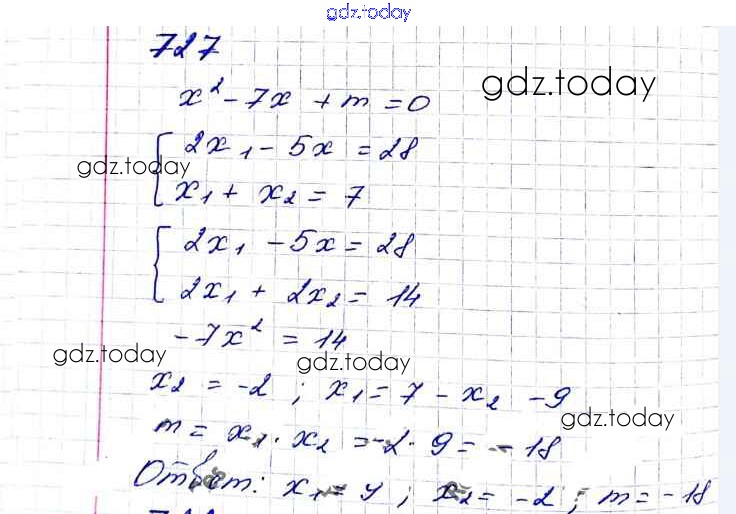 gdz.today
727
x² - 7x + m = 0
gdz.today
2x₁ - 5x = 28
gdz.today
x₁ + x₂ = 7
2x₁ - 5x = 28
2x₁ + 2x₂ = 14
-7x² = 14
gdz.today
gdz.today
x₂ = -2 ; x₁ = 7 - x₂ - 9
gdz.today
m = x₁ · x₂ = -2 · 9 = -18
Ответ: x₁ = 9 ; x₂ = -2 ; m = -18